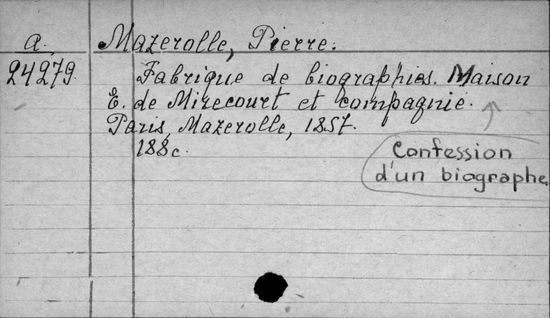 a. Mazerolle, Pierre.
24279. Fabrique de biographies. Maison
E. de Mirecourt et compagnie.
Paris, Mazerolle, 1857.
188 c.
Confession
d'un biographe.